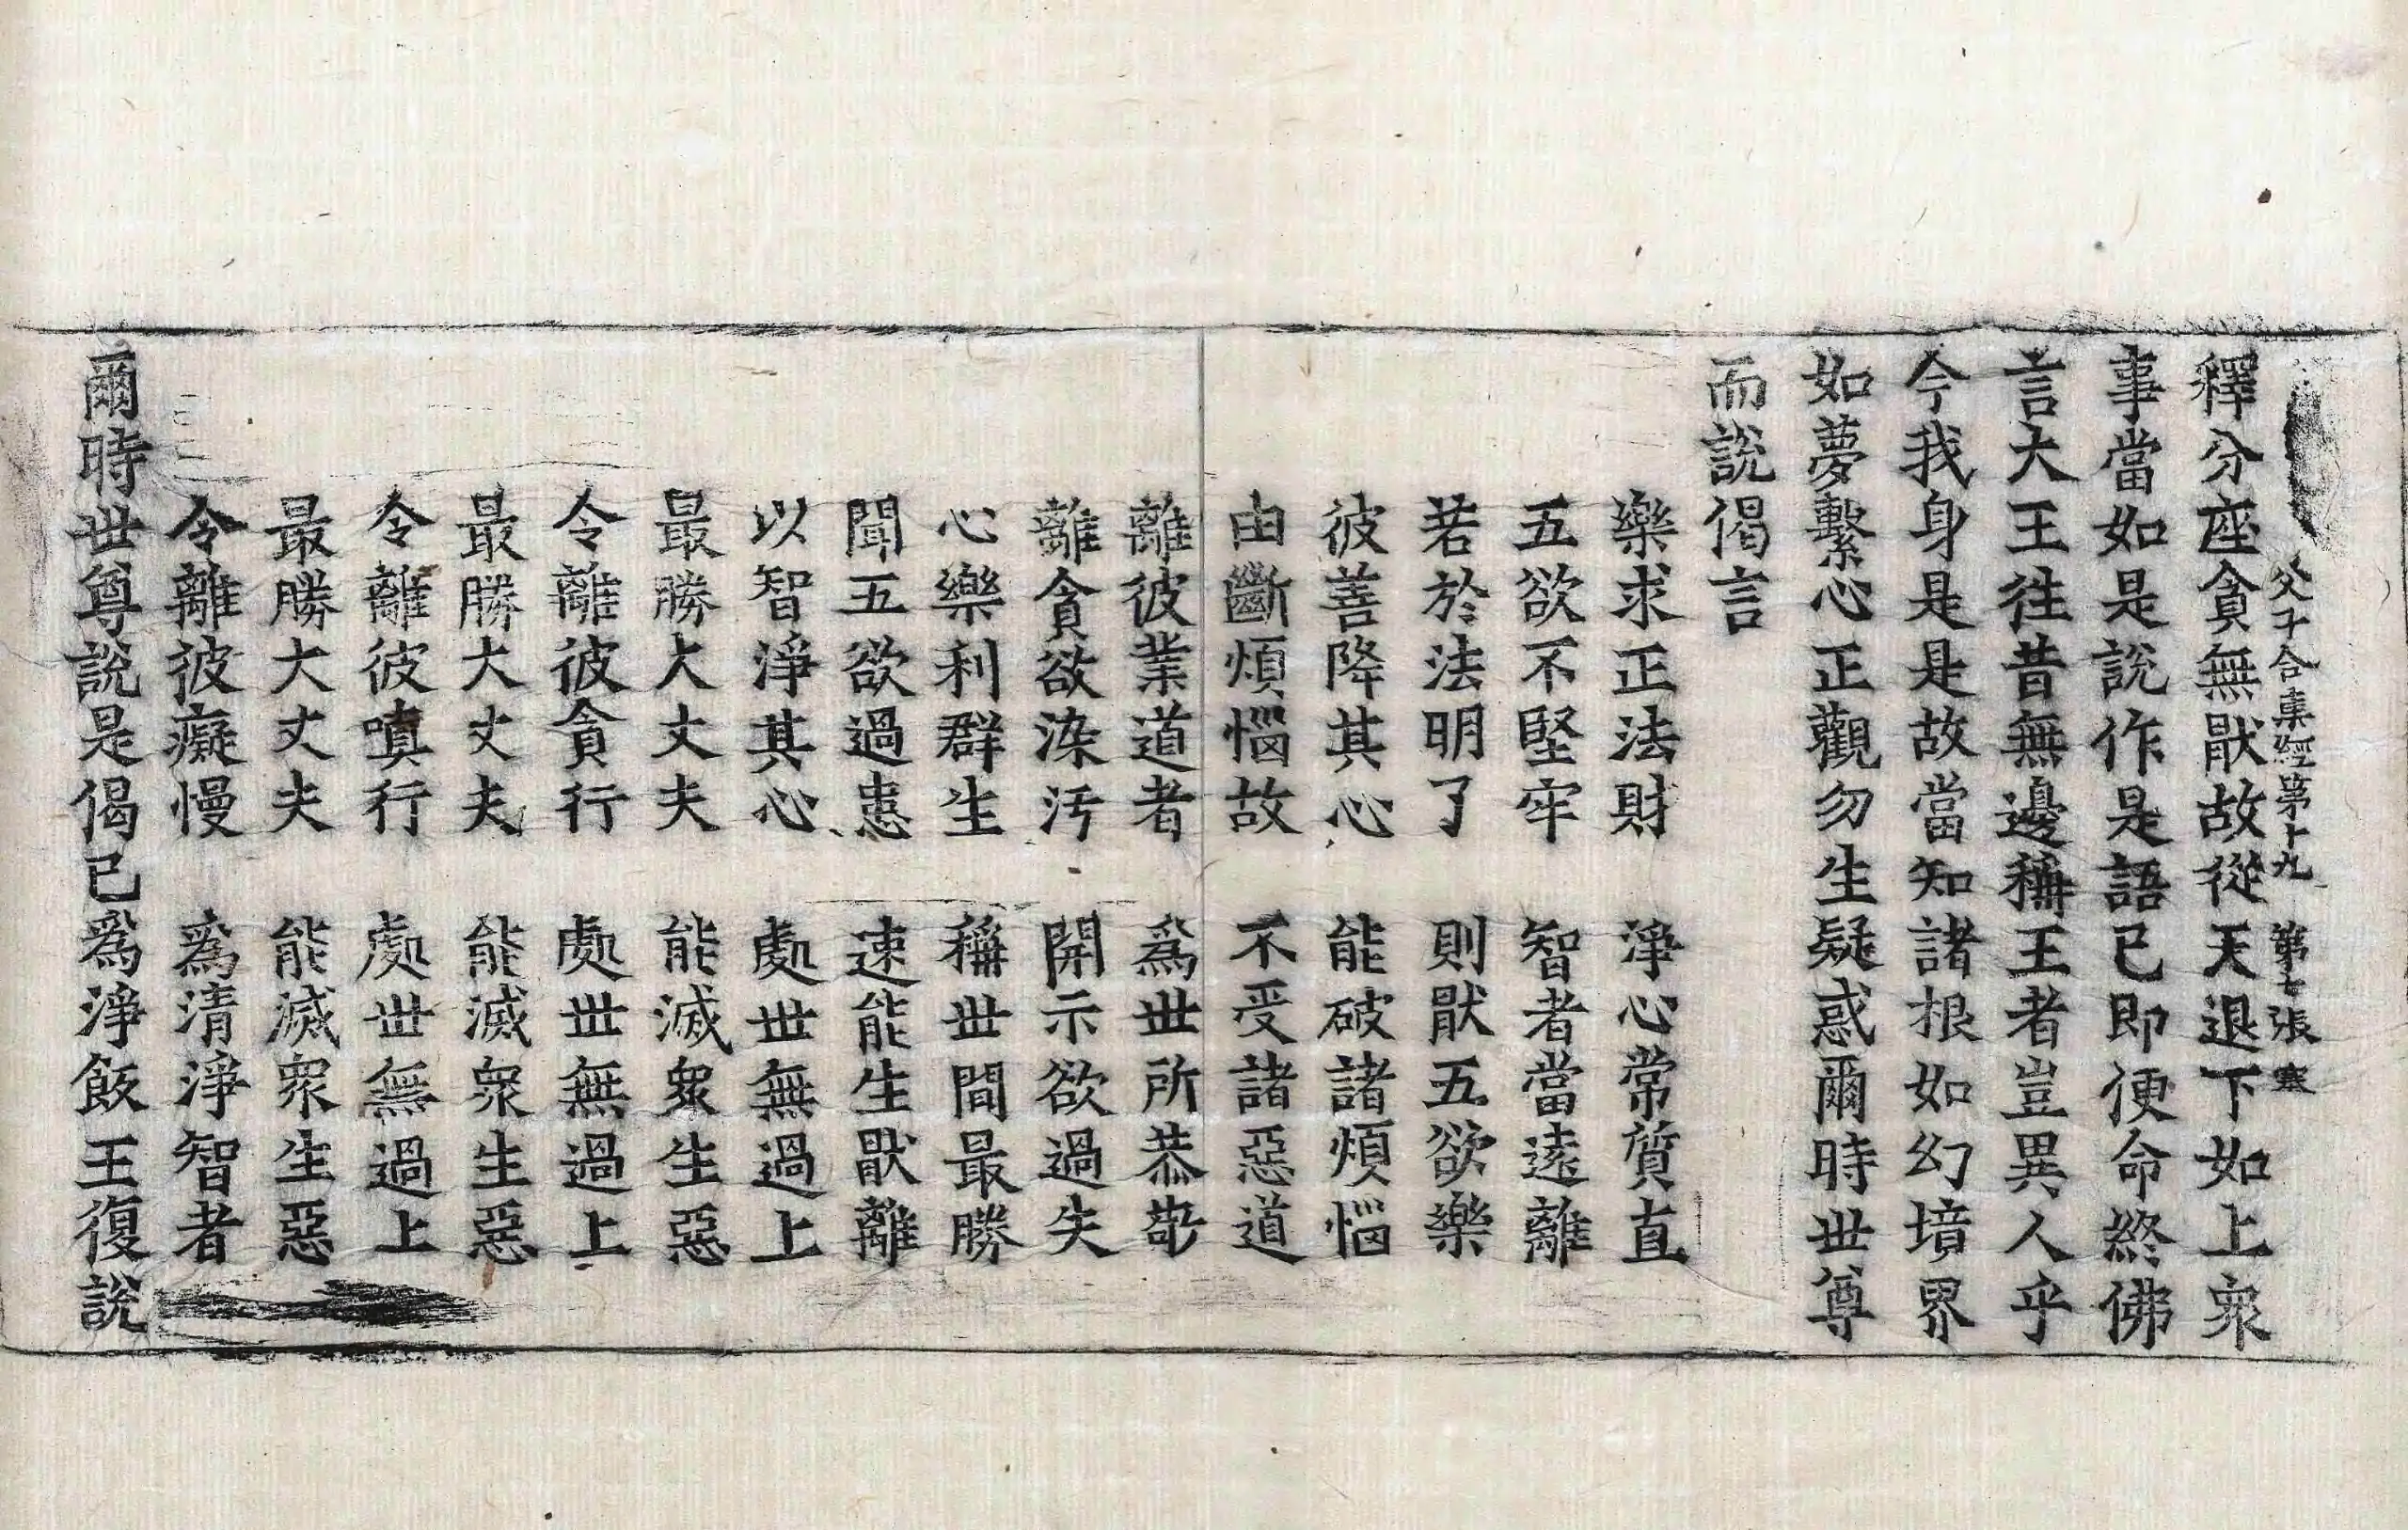 父子合集經第十九 第七張 寒
釋分座貪無猒故從天退下如上衆
事當如是說作是語已即便命終佛
言大王往昔無邊稱王者豈異人乎
今我身是是故當知諸根如幻境界
如夢繫心正觀勿生疑惑爾時世尊
而說偈言
樂求正法財 淨心常質直
五欲不堅牢 智者當遠離
若於法明了 則猒五欲樂
彼善降其心 能破諸煩惱
由斷煩惱故 不受諸惡道
離彼業道者 爲世所恭敬
離貪欲染汚 開示欲過失
心樂利群生 稱世間最勝
聞五欲過患 速能生猒離
以智淨其心 處世無過上
最勝大丈夫 能滅衆生惡
令離彼貪行 處世無過上
最勝大丈夫 能滅衆生惡
令離彼嗔行 處世無過上
最勝大丈夫 能滅衆生惡
令離彼癡慢 爲清淨智者
爾時世尊說是偈已爲淨飯王復說